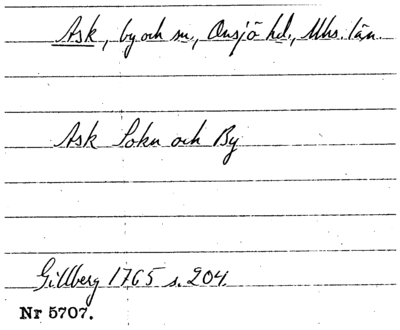 Ask, by och sn., Onsjö hd., Mhs. län.
Ask Sokn och By
Gillberg 1765 s. 204.
Nr 5707.